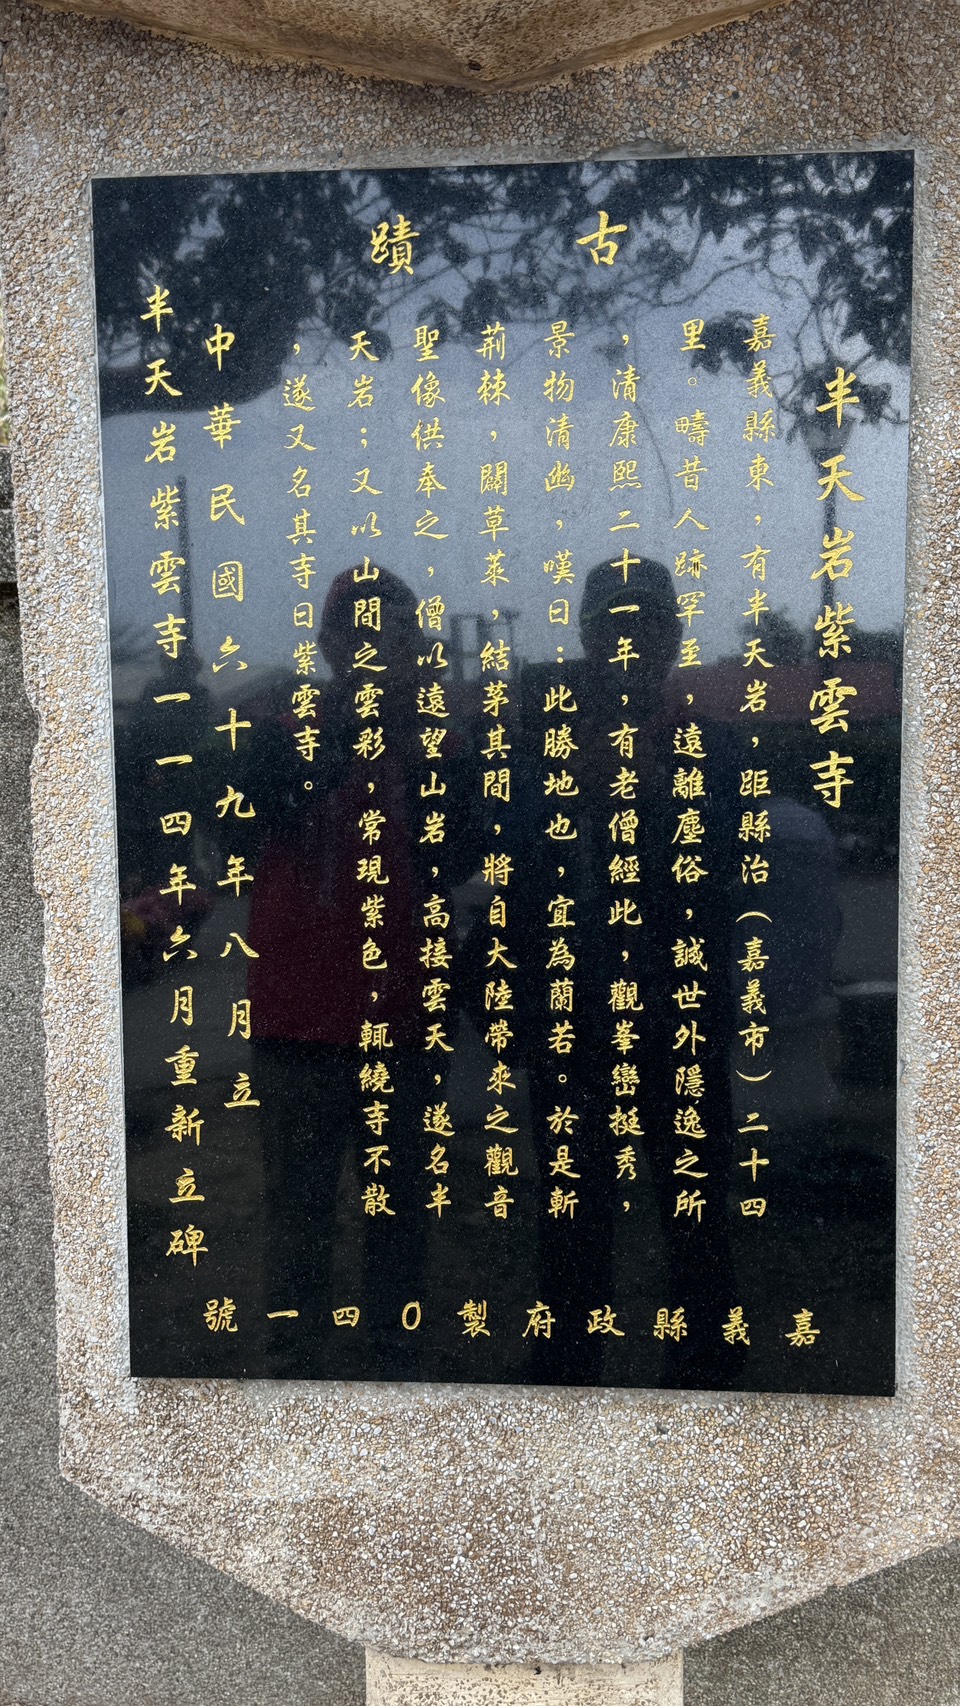 古蹟
半天岩紫雲寺
嘉義縣東，有半天岩，距縣治（嘉義市）二十四
里。疇昔人跡罕至，遠離塵俗，誠世外隱逸之所
，清康熙二十一年，有老僧經此，觀峯巒挺秀，
景物清幽，嘆曰：此勝地也，宜為蘭若。於是斬
荊棘，闢草萊，結茅其間，將自大陸帶來之觀音
聖像供奉之，僧以遠望山岩，高接雲天，遂名半
天岩；又以山間之雲彩，常現紫色，輒繞寺不散
，遂又名其寺曰紫雲寺。
中華民國六十九年八月立
半天岩紫雲寺一一四年六月重新立碑
嘉義縣政府製0四一號